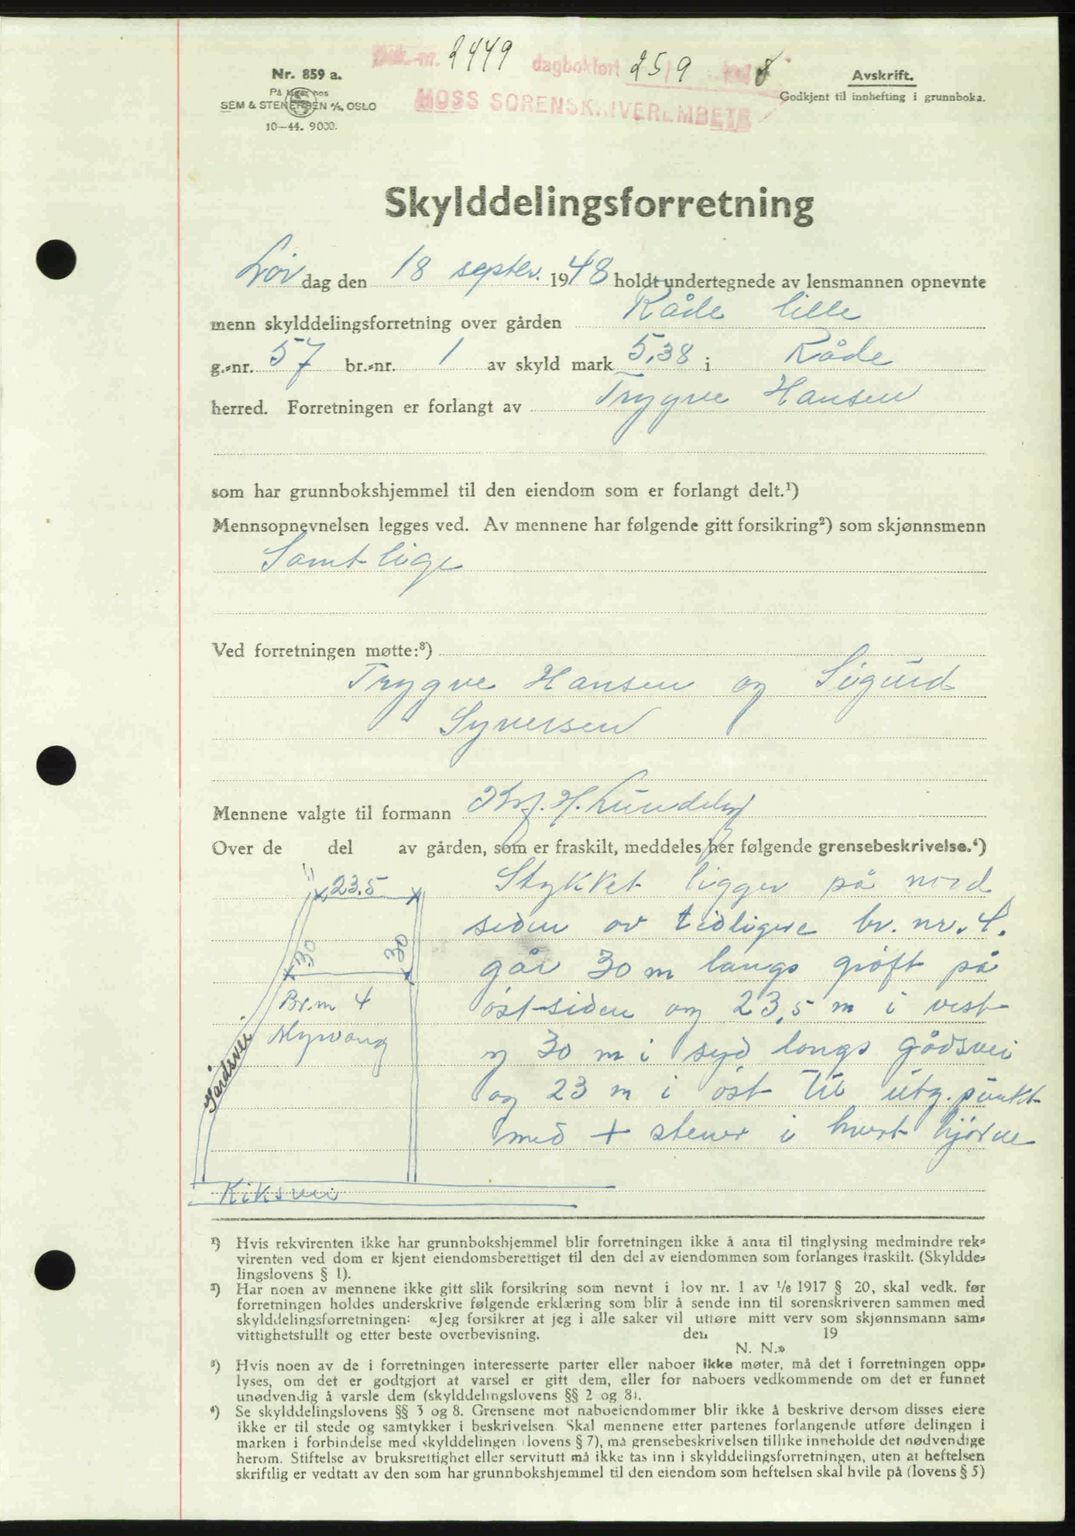 Dok.-nr. 2449 dagbokført 25/9 1948
MOSS SORENSKRIVEREMBETE
Nr. 859 a.
På lager hos
SEM & STENERSEN A/S, OSLO
10—44. 9000.
Avskrift.
Godkjent til innhefting i grunnboka.
Skylddelingsforretning
Lør dag den 18 septbr. 1948 holdt undertegnede av lensmannen opnevnte
menn skylddelingsforretning over gården Råde lille
g.-nr. 57 br.-nr. 1 av skyld mark 5,38 i Råde
herred. Forretningen er forlangt av Trygve Hansen
som har grunnbokshjemmel til den eiendom som er forlangt delt.¹)
Mennsopnevnelsen legges ved. Av mennene har følgende gitt forsikring²) som skjønnsmenn
Samtlige
Ved forretningen møtte:³)
Trygve Hansen og Sigurd
Syversen
Mennene valgte til formann H. Lundeby
Over de del av gården, som er fraskilt, meddeles her følgende grensebeskrivelse.⁴)
Stykket ligger på nord
siden av tidligere br. nr. 4.
går 30 m langs grøft på
østsiden og 23,5 m i vest
og 30 m i syd langs gårdsvei
og 23 m i øst til utg. punkt
med + stener i hvert hjørne
23.5
30
30
Br.nr 4
Myrvang
Gårdsvei
Riksvei
¹) Hvis rekvirenten ikke har grunnbokshjemmel blir forretningen ikke å anta til tinglysing medmindre rek-
virenten ved dom er kjent eiendomsberettiget til den del av eiendommen som forlanges fraskilt. (Skyldde-
lingslovens § 1).
²) Har noen av mennene ikke gitt slik forsikring som nevnt i lov nr. 1 av 1/6 1917 § 20, skal vedk. før
forretningen holdes underskrive følgende erklæring som blir å sende inn til sorenskriveren sammen med
skylddelingsforretningen: «Jeg forsikrer at jeg i alle saker vil utføre mitt verv som skjønnsmann sam-
vittighetsfullt og etter beste overbevisning. den 19
N. N.»
³) Hvis noen av de i forretningen interesserte parter eller naboer ikke møter, må det i forretningen opp-
lyses, om det er godtgjort at varsel er gitt dem, eller for naboers vedkommende om det er funnet
unødvendig å varsle dem (skylddelingslovens §§ 2 og 8).
⁴) Se skylddelingslovens §§ 3 og 8. Grensene mot naboeiendommer blir ikke å beskrive dersom disses eiere
ikke er til stede og samtykker i beskrivelsen. Skal mennene etter partenes forlangende utføre delingen i
marken i forbindelse med skylddelingen (lovens § 7), må grensebeskrivelsen tillike inneholde det nødvendige
herom. Stiftelse av bruksrettighet eller servitutt må ikke tas inn i skylddelingsforretningen, uten at heftelsen
skriftlig er vedtatt av den som har grunnbokshjemmel til den eiendom som heftelsen skal hvile på (lovens § 5)